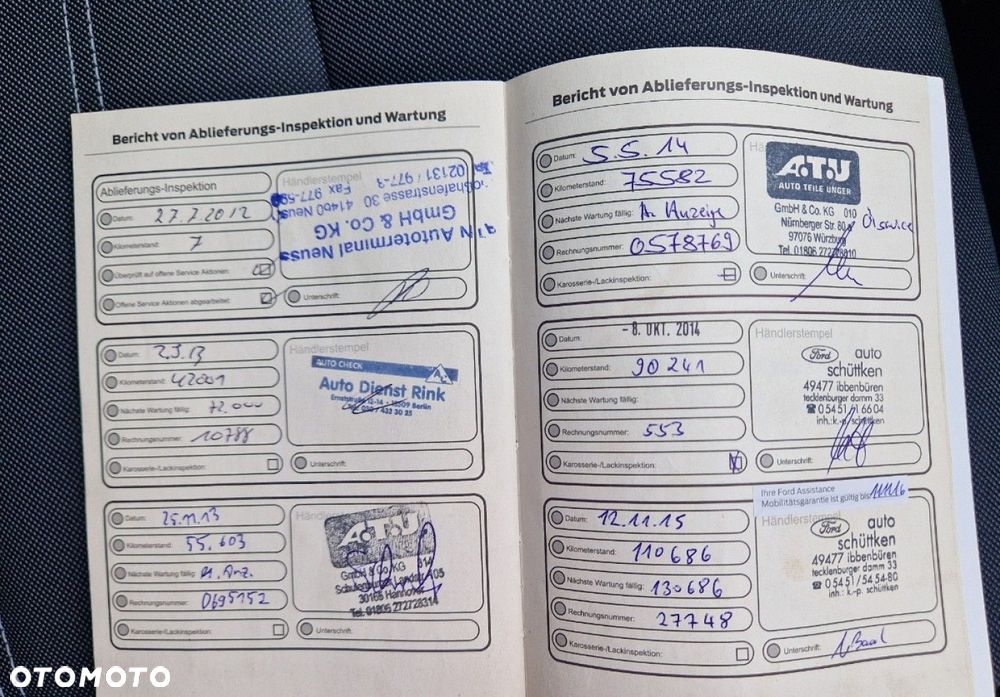 Bericht von Ablieferungs-Inspektion und Wartung
Ablieferungs-Inspektion
Datum: 27.7.2012
Kilometerstand: 7
Überprüft auf offene Service Aktionen:
Offene Service Aktionen abgearbeitet:
Händlerstempel
Autoterminal Neuss
GmbH & Co. KG
30 41460 Neuss
02131 / 977-
Fax 977-
Unterschrift:
Datum:
Kilometerstand: 42001
Nächste Wartung fällig: 72.000
Rechnungsnummer: 10788
Karosserie-/Lackinspektion:
Händlerstempel
AUTO CHECK
Auto Dienst Rink
12-14 · 13509 Berlin
433 30 25
Unterschrift:
Datum: 25.11.13
Kilometerstand: 55.603
Nächste Wartung fällig: Anz.
Rechnungsnummer: 0695152
Karosserie-/Lackinspektion:
Händlerstempel
A.T.U
GmbH & Co. KG 014
Schulenburger Landstr. 105
30165 Hannover
Tel. 01806 272728314
Unterschrift:
Bericht von Ablieferungs-Inspektion und Wartung
Datum: 5.5.14
Kilometerstand: 75582
Nächste Wartung fällig: Anzeige
Rechnungsnummer: 0578769
Karosserie-/Lackinspektion:
A.T.U
AUTO TEILE UNGER
GmbH & Co. KG 010
Nürnberger Str. 80
97076 Würzburg
Tel. 01806 272728010
Ölservice
Unterschrift:
Datum: - 8. OKT. 2014
Kilometerstand: 90241
Nächste Wartung fällig:
Rechnungsnummer: 553
Karosserie-/Lackinspektion:
Händlerstempel
Ford auto
schüttken
49477 ibbenbüren
tecklenburger damm 33
☎ 0 54 51 / 1 66 04
inh.: k.-p. schüttken
Unterschrift:
Ihre Ford Assistance
Mobilitätsgarantie ist gültig bis
Datum: 12.11.15
Kilometerstand: 110686
Nächste Wartung fällig: 130686
Rechnungsnummer: 27748
Karosserie-/Lackinspektion:
Händlerstempel
Ford auto
schüttken
49477 ibbenbüren
tecklenburger damm 33
☎ 0 54 51 / 54 54-80
inh.: k.-p. schüttken
Unterschrift:
OTOMOTO